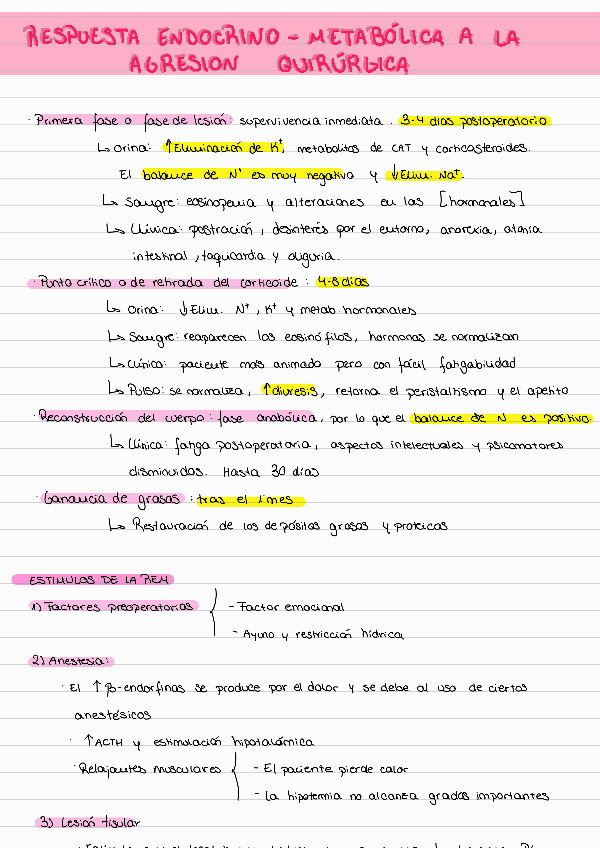 RESPUESTA ENDOCRINO - METABÓLICA A LA
AGRESION QUIRÚRGICA
· Primera fase o fase de lesión: supervivencia inmediata. 3-4 días postoperatorio
↳ Orina: ↑Eliminación de K⁺, metabolitos de CAT y corticosteroides.
El balance de N⁺ es muy negativo y ↓Elim. Na⁺.
↳ Sangre: eosinopenia y alteraciones en las [hormonales]
↳ Clínica: postración, desinterés por el entorno, anorexia, atonía
intestinal, taquicardia y oliguria.
· Punto crítico o de retirada del corticoide: 4-8 días
↳ Orina: ↓Elim. N⁺, K⁺ y metab. hormonales
↳ Sangre: reaparecen los eosinófilos, hormonas se normalizan
↳ Clínica: paciente más animado pero con fácil fatigabilidad
↳ Pulso: se normaliza, ↑diuresis, retorna el peristaltismo y el apetito
· Reconstrucción del cuerpo: fase anabólica, por lo que el balance de N es positivo.
↳ Clínica: fatiga postoperatoria, aspectos intelectuales y psicomotores
disminuidos. Hasta 30 días
· Ganancia de grasas: tras el 1 mes
↳ Restauración de los depósitos grasos y proteicos
ESTIMULOS DE LA REM
1) Factores preoperatorios
- Factor emocional
- Ayuno y restricción hídrica
2) Anestesia:
· El ↑β-endorfinas se produce por el dolor y se debe al uso de ciertos
anestésicos
· ↑ACTH y estimulación hipotalámica
· Relajantes musculares
- El paciente pierde calor
- La hipotermia no alcanza grados importantes
3) Lesión tisular